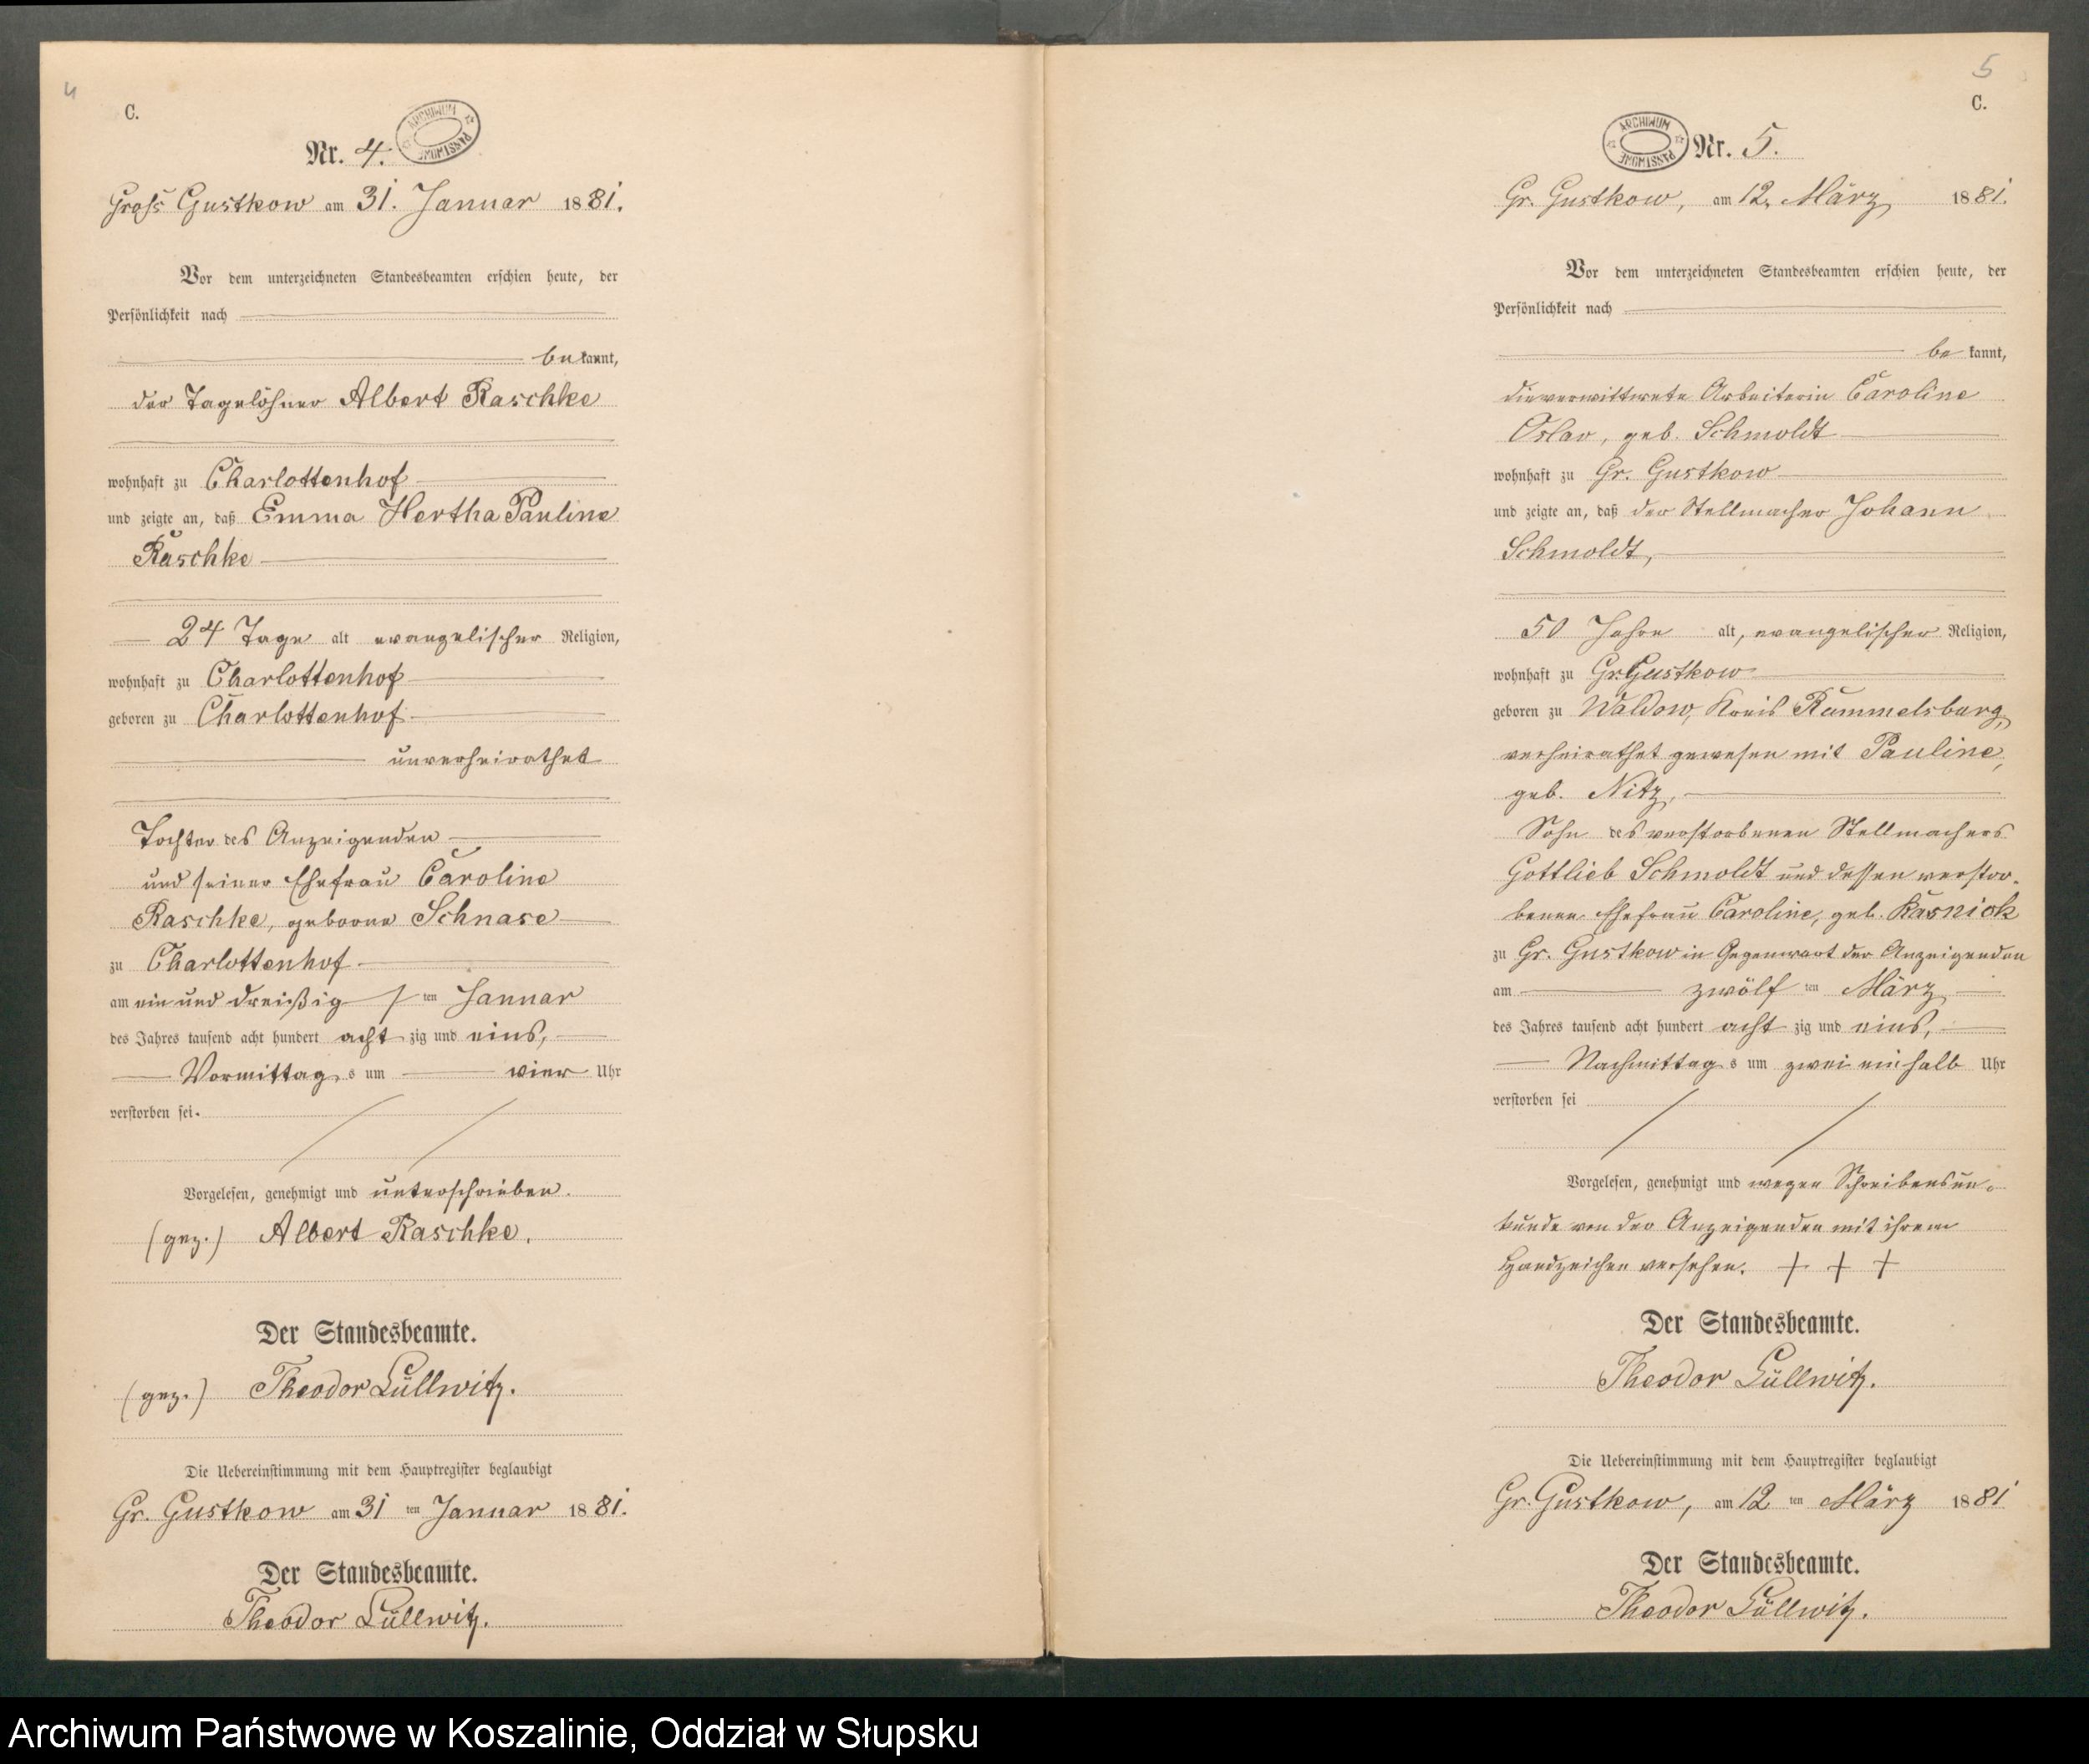 4
C.
ARCHIWUM PAŃSTWOWE
Nr. 4.
Groß Gustkow am 31. Januar 1881.
Vor dem unterzeichneten Standesbeamten erschien heute, der
Persönlichkeit nach
bekannt,
der Tagelöhner Albert Raschke
wohnhaft zu Charlottenhof
und zeigte an, daß Emma Hertha Pauline
Raschke
24 Tage alt evangelischer Religion,
wohnhaft zu Charlottenhof
geboren zu Charlottenhof
unverheirathet
Tochter des Anzeigenden
und seiner Ehefrau Caroline
Raschke, geborne Schnase
zu Charlottenhof
am ein und dreißig ten Januar
des Jahres tausend acht hundert acht zig und eins,
Vormittags um vier Uhr
verstorben sei.
Vorgelesen, genehmigt und unterschrieben.
(gez.) Albert Raschke.
Der Standesbeamte.
(gez.) Theodor Lüllwitz.
Die Uebereinstimmung mit dem Hauptregister beglaubigt
Gr. Gustkow am 31 ten Januar 1881.
Der Standesbeamte.
Theodor Lüllwitz.
5
C.
ARCHIWUM PAŃSTWOWE
Nr. 5.
Gr. Gustkow, am 12. März 1881.
Vor dem unterzeichneten Standesbeamten erschien heute, der
Persönlichkeit nach
bekannt,
die verwittwete Arbeiterin Caroline
geb. Schmoldt
wohnhaft zu Gr. Gustkow
und zeigte an, daß der Stellmacher Johann
Schmoldt,
50 Jahre alt, evangelischer Religion,
wohnhaft zu Gr. Gustkow
geboren zu Waldow, Kreis Rummelsburg,
verheirathet gewesen mit Pauline,
geb. Nitz,
Sohn des verstorbenen Stellmachers
Gottlieb Schmoldt und dessen verstor-
benen Ehefrau Caroline, geb. Kasniok
zu Gr. Gustkow in Gegenwart der Anzeigenden
am zwölf ten März
des Jahres tausend acht hundert acht zig und eins,
Nachmittags um zwei einhalb Uhr
verstorben sei
Vorgelesen, genehmigt und wegen Schreibensun-
kunde von der Anzeigenden mit ihrem
Handzeichen versehen. + + +
Der Standesbeamte.
Theodor Lüllwitz.
Die Uebereinstimmung mit dem Hauptregister beglaubigt
Gr. Gustkow, am 12 ten März 1881
Der Standesbeamte.
Theodor Lüllwitz.
Archiwum Państwowe w Koszalinie, Oddział w Słupsku